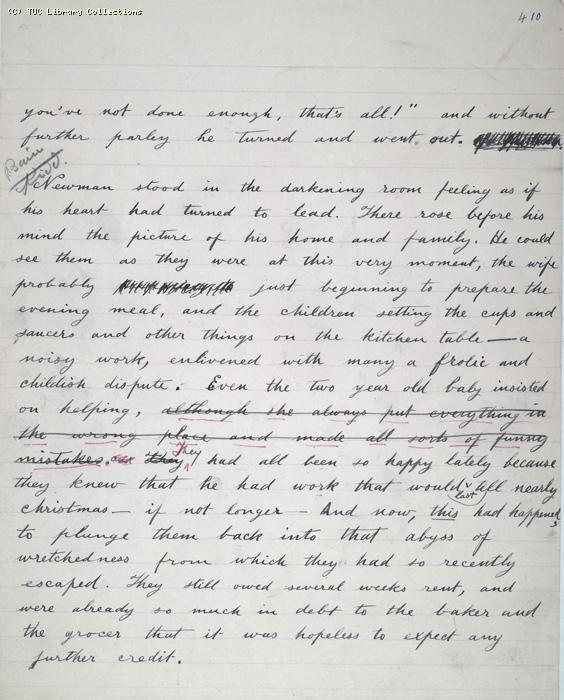 (C) TUC Library Collections
410
you've not done enough, that's all!" and without
further parley he turned and went out.
Newman stood in the darkening room feeling as if
his heart had turned to lead. There rose before his
mind the picture of his home and family. He could
see them as they were at this very moment, the wife
probably just beginning to prepare the
evening meal, and the children setting the cups and
saucers and other things on the kitchen table — a
noisy work, enlivened with many a frolic and
childish dispute. Even the two year old baby insisted
on helping, although she always put everything in
the wrong place and made all sorts of funny
mistakes. they They had all been so happy lately because
they knew that he had work that would last till nearly
christmas — if not longer — And now, this had happened
to plunge them back into that abyss of
wretchedness from which they had so recently
escaped. They still owed several weeks rent, and
were already so much in debt to the baker and
the grocer that it was hopeless to expect any
further credit.